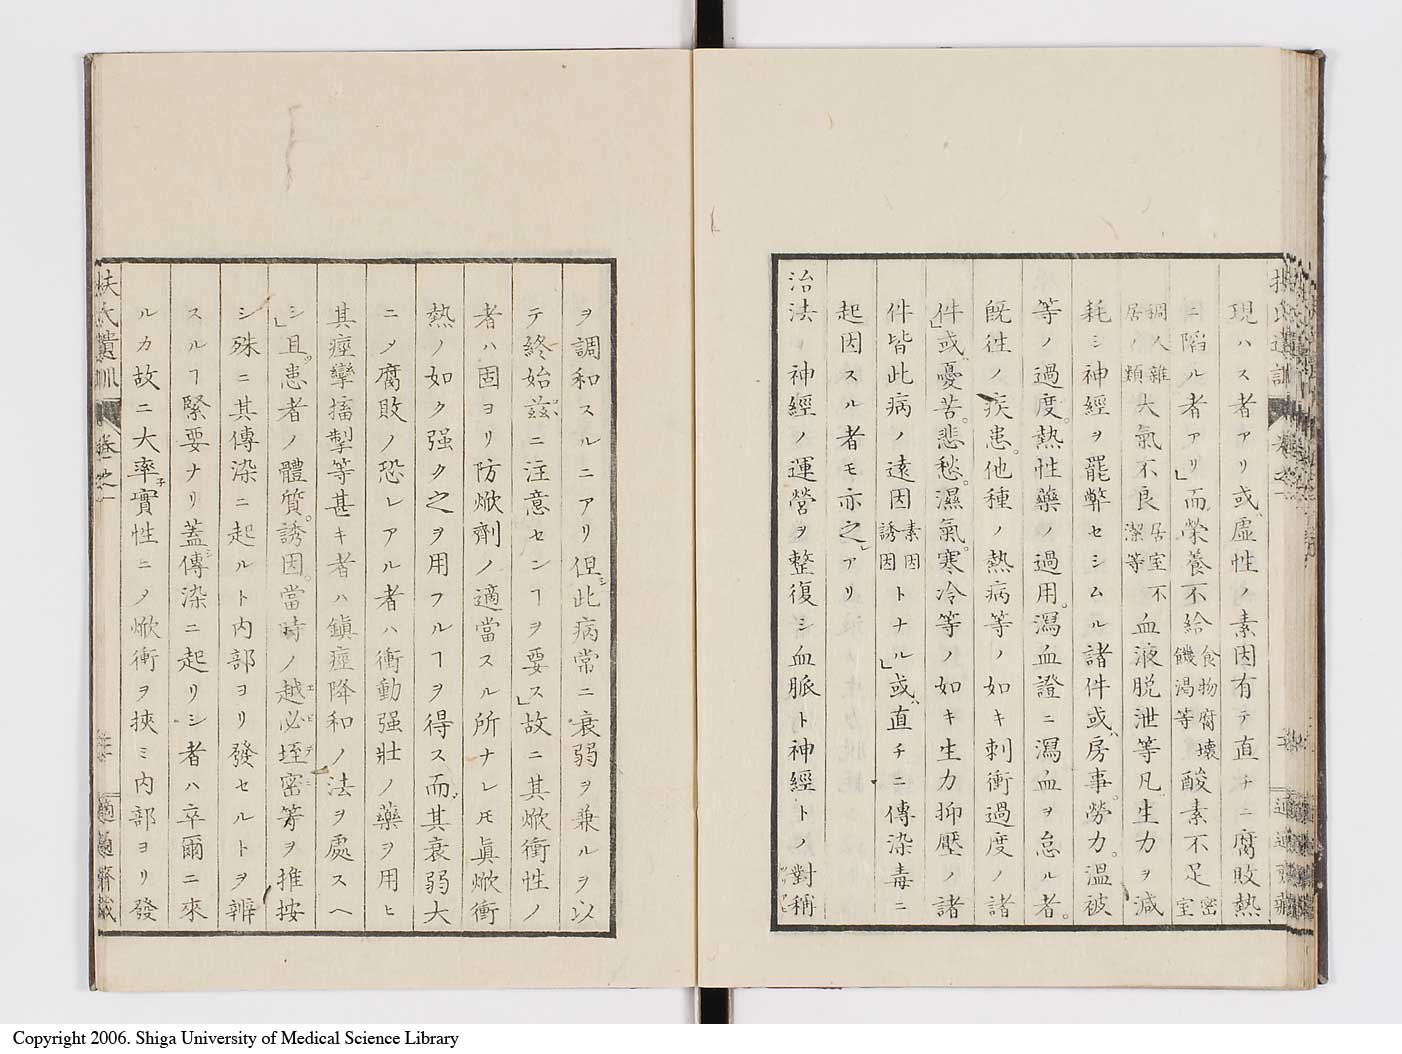 現ハス者アリ或虚性ノ素因有テ直チニ腐敗熱
ニ陷ル者アリ」而榮養不給食物腐壞饑渴等酸素不足密室
稠人雜居ノ類大氣不良居室不潔等血液脱泄等凡生力ヲ減
耗シ神經ヲ罷弊セシムル諸件或房事。勞力。溫被
等ノ過度。熱性藥ノ過用。瀉血證ニ瀉血ヲ怠ル者。
旣往ノ疾患。他種ノ熱病等ノ如キ刺衝過度ノ諸
件」或憂苦。悲愁。濕氣。寒冷等ノ如キ生力抑壓ノ諸
件皆此病ノ遠因素因誘因トナル」或直チニ傳染毒ニ
起因スル者モ亦之アリ
治法 神經ノ運營ヲ整復シ血脈ト神經トノ對稱
扶氏遺訓 卷之
ヲ調和スルニアリ但シ此病常ニ衰弱ヲ兼ルヲ以
テ終始茲ニ注意センヿヲ要ス」故ニ其焮衝性ノ
者ハ固ヨリ防焮劑ノ適當スル所ナレモ眞焮衝
熱ノ如ク强ク之ヲ用フルヿヲ得ス而其衰弱大
ニノ腐敗ノ恐レアル者ハ衝動强壯ノ藥ヲ用ヒ
其痙攣搐掣等甚キ者ハ鎭痙降和ノ法ヲ處スヘ
シ」且。患者ノ體質。誘因。當時ノ越必垤密エピデミ等ヲ推按
シ殊ニ其傳染ニ起ルト內部ヨリ發セルトヲ辨
スルヿ緊要ナリ蓋シ傳染ニ起リシ者ハ卒爾ニ來
ルカ故ニ大率子實性ニノ焮衝ヲ挾ミ內部ヨリ發
扶氏遺訓 卷之一
適適齋藏
Copyright 2006. Shiga University of Medical Science Library